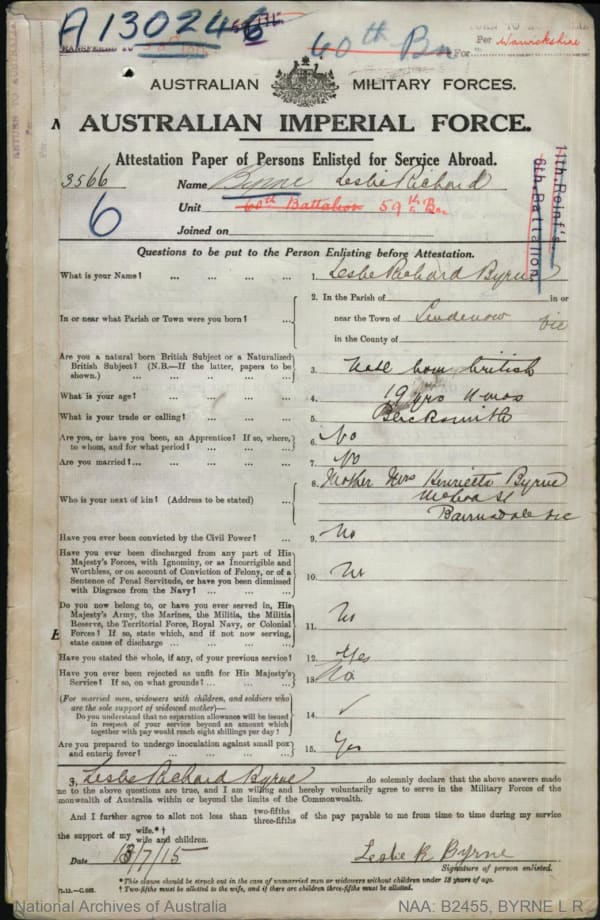 A130246
60th Bn
Per Warwickshire
For
AUSTRALIAN MILITARY FORCES.
AUSTRALIAN IMPERIAL FORCE.
Attestation Paper of Persons Enlisted for Service Abroad.
3566 Name Byrne Leslie Richard
6 Unit 60th Battalion 59th Bn
Joined on
11th Reinf's
6th Battalion
Questions to be put to the Person Enlisting before Attestation.
What is your Name? ... ... ... ... 1. Leslie Richard Byrne
In or near what Parish or Town were you born? ... 2. In the Parish of in or
near the Town of Lindenow Vic
in the County of
Are you a natural born British Subject or a Naturalized British Subject? (N.B.—If the latter, papers to be shown.) ... ... ... ... 3. Natl born British
What is your age? ... ... ... ... 4. 19 yrs mos
What is your trade or calling? ... ... ... 5. Blacksmith
Are you, or have you been, an Apprentice? If so, where, to whom, and for what period? ... ... ... 6. No
Are you married? ... ... ... ... 7. No
Who is your next of kin? (Address to be stated) ... 8. Mother Mrs Henrietta Byrne
McLeod St
Bairnsdale Vic
Have you ever been convicted by the Civil Power? ... 9. No
Have you ever been discharged from any part of His
Majesty's Forces, with Ignominy, or as Incorrigible and
Worthless, or on account of Conviction of Felony, or of a
Sentence of Penal Servitude, or have you been dismissed
with Disgrace from the Navy? ... ... ... 10. No
Do you now belong to, or have you ever served in, His
Majesty's Army, the Marines, the Militia, the Militia
Reserve, the Territorial Force, Royal Navy, or Colonial
Forces? If so, state which, and if not now serving,
state cause of discharge ... ... ... 11. No
Have you stated the whole, if any, of your previous service? 12. Yes
Have you ever been rejected as unfit for His Majesty's
Service? If so, on what grounds? ... ... ... 13. No
(For married men, widowers with children, and soldiers who
are the sole support of widowed mother)—
Do you understand that no separation allowance will be issued
in respect of your service beyond an amount which
together with pay would reach eight shillings per day? 14. ✓
Are you prepared to undergo inoculation against small pox
and enteric fever? ... ... ... ... 15. Yes
I, Leslie Richard Byrne do solemnly declare that the above answers made
me to the above questions are true, and I am willing and hereby voluntarily agree to serve in the Military Forces of the
monwealth of Australia within or beyond the limits of the Commonwealth.
And I further agree to allot not less than two-fifths three-fifths of the pay payable to me from time to time during my service
the support of my wife.*† wife and children.
Date 13/7/15 Leslie R Byrne
Signature of person enlisted.
*This clause should be struck out in the case of unmarried men or widowers without children under 18 years of age.
† Two-fifths must be allotted to the wife, and if there are children three-fifths must be allotted.
National Archives of Australia NAA: B2455, BYRNE L R